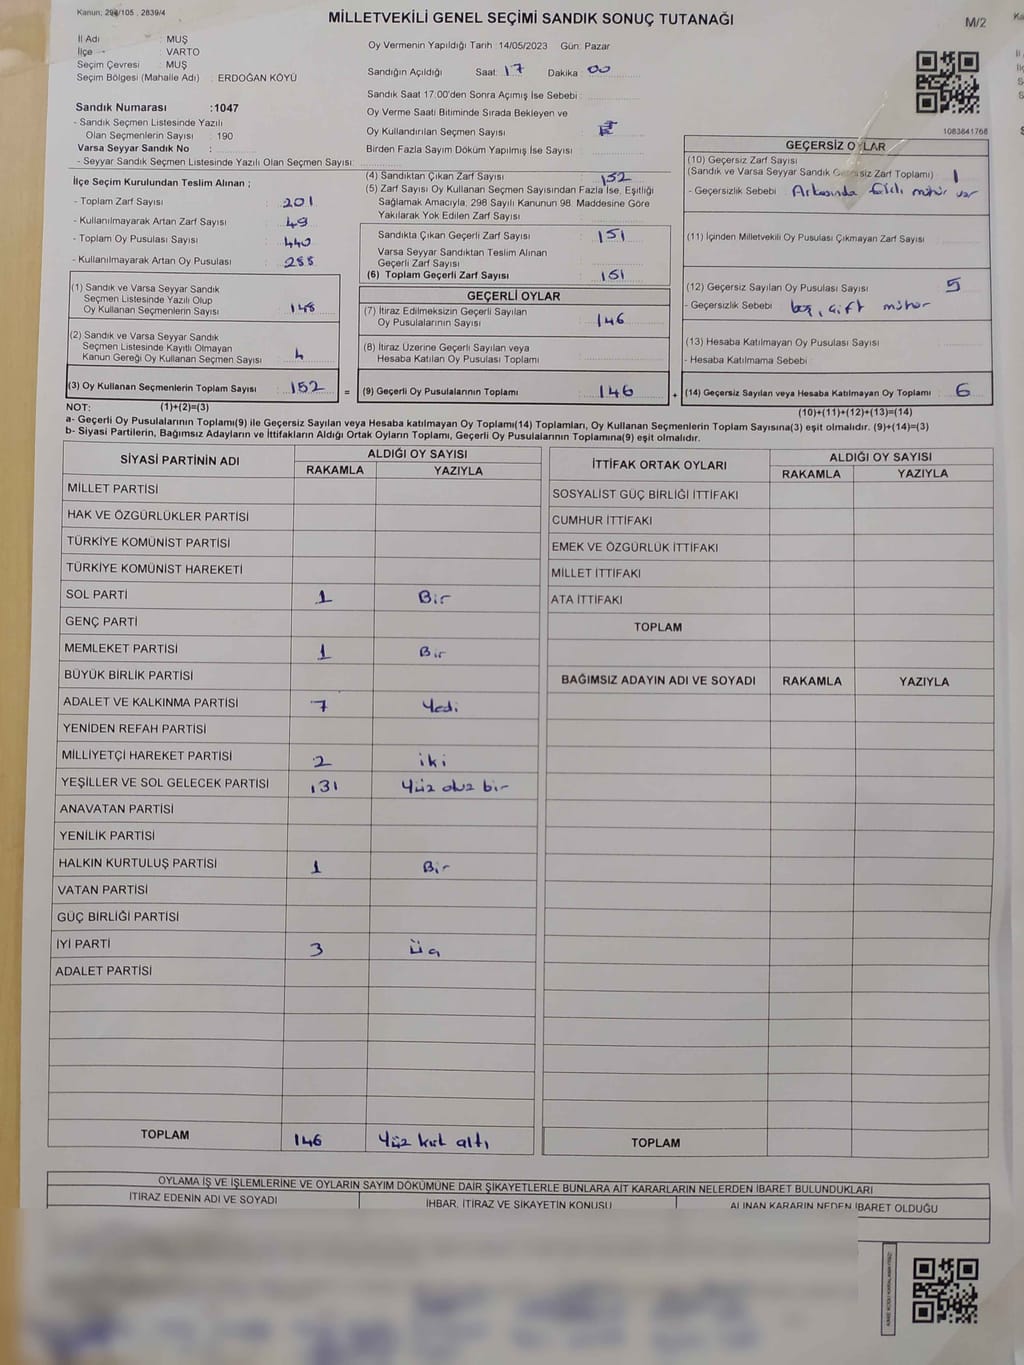 Kanun; 298/105 , 2839/4
MİLLETVEKİLİ GENEL SEÇİMİ SANDIK SONUÇ TUTANAĞI
M/2
İl Adı : MUŞ
İlçe : VARTO
Seçim Çevresi : MUŞ
Seçim Bölgesi (Mahalle Adı) : ERDOĞAN KÖYÜ
Sandık Numarası :1047
- Sandık Seçmen Listesinde Yazılı
Olan Seçmenlerin Sayısı : 190
Varsa Seyyar Sandık No :
- Seyyar Sandık Seçmen Listesinde Yazılı Olan Seçmen Sayısı:
Oy Vermenin Yapıldığı Tarih : 14/05/2023 Gün: Pazar
Sandığın Açıldığı Saat: 17 Dakika: 00
Sandık Saat 17:00'den Sonra Açımış İse Sebebi :
Oy Verme Saati Bitiminde Sırada Bekleyen ve
Oy Kullandırılan Seçmen Sayısı :
Birden Fazla Sayım Döküm Yapılmış İse Sayısı :
1083641768
İlçe Seçim Kurulundan Teslim Alınan ;
- Toplam Zarf Sayısı : 201
- Kullanılmayarak Artan Zarf Sayısı : 49
- Toplam Oy Pusulası Sayısı : 440
- Kullanılmayarak Artan Oy Pusulası : 288
(1) Sandık ve Varsa Seyyar Sandık
Seçmen Listesinde Yazılı Olup
Oy Kullanan Seçmenlerin Sayısı : 148
(2) Sandık ve Varsa Seyyar Sandık
Seçmen Listesinde Kayıtlı Olmayan
Kanun Gereği Oy Kullanan Seçmen Sayısı : 4
(3) Oy Kullanan Seçmenlerin Toplam Sayısı : 152 =
(4) Sandıktan Çıkan Zarf Sayısı : 152
(5) Zarf Sayısı Oy Kullanan Seçmen Sayısından Fazla İse, Eşitliği
Sağlamak Amacıyla, 298 Sayılı Kanunun 98. Maddesine Göre
Yakılarak Yok Edilen Zarf Sayısı :
Sandıkta Çıkan Geçerli Zarf Sayısı : 151
Varsa Seyyar Sandıktan Teslim Alınan
Geçerli Zarf Sayısı :
(6) Toplam Geçerli Zarf Sayısı : 151
GEÇERLİ OYLAR
(7) İtiraz Edilmeksizin Geçerli Sayılan
Oy Pusulalarının Sayısı : 146
(8) İtiraz Üzerine Geçerli Sayılan veya
Hesaba Katılan Oy Pusulası Toplamı :
(9) Geçerli Oy Pusulalarının Toplamı : 146 +
GEÇERSİZ OYLAR
(10) Geçersiz Zarf Sayısı
(Sandık ve Varsa Seyyar Sandık Geçersiz Zarf Toplamı) : 1
- Geçersizlik Sebebi : Arkasında mühür var
(11) İçinden Milletvekili Oy Pusulası Çıkmayan Zarf Sayısı :
(12) Geçersiz Sayılan Oy Pusulası Sayısı : 5
- Geçersizlik Sebebi : boş, çift mühür
(13) Hesaba Katılmayan Oy Pusulası Sayısı :
- Hesaba Katılmama Sebebi :
(14) Geçersiz Sayılan veya Hesaba Katılmayan Oy Toplamı : 6
NOT: (1)+(2)=(3)
(10)+(11)+(12)+(13)=(14)
a- Geçerli Oy Pusulalarının Toplamı(9) ile Geçersiz Sayılan veya Hesaba katılmayan Oy Toplamı(14) Toplamları, Oy Kullanan Seçmenlerin Toplam Sayısına(3) eşit olmalıdır. (9)+(14)=(3)
b- Siyasi Partilerin, Bağımsız Adayların ve İttifakların Aldığı Ortak Oyların Toplamı, Geçerli Oy Pusulalarının Toplamına(9) eşit olmalıdır.
SİYASİ PARTİNİN ADI ALDIĞI OY SAYISI
RAKAMLA YAZIYLA
MİLLET PARTİSİ
HAK VE ÖZGÜRLÜKLER PARTİSİ
TÜRKİYE KOMÜNİST PARTİSİ
TÜRKİYE KOMÜNİST HAREKETİ
SOL PARTİ 1 Bir
GENÇ PARTİ
MEMLEKET PARTİSİ 1 Bir
BÜYÜK BİRLİK PARTİSİ
ADALET VE KALKINMA PARTİSİ 7 Yedi
YENİDEN REFAH PARTİSİ
MİLLİYETÇİ HAREKET PARTİSİ 2 iki
YEŞİLLER VE SOL GELECEK PARTİSİ 131 Yüz otuz bir
ANAVATAN PARTİSİ
YENİLİK PARTİSİ
HALKIN KURTULUŞ PARTİSİ 1 Bir
VATAN PARTİSİ
GÜÇ BİRLİĞİ PARTİSİ
İYİ PARTİ 3 Üç
ADALET PARTİSİ
TOPLAM 146 Yüz kırk altı
İTTİFAK ORTAK OYLARI ALDIĞI OY SAYISI
RAKAMLA YAZIYLA
SOSYALİST GÜÇ BİRLİĞİ İTTİFAKI
CUMHUR İTTİFAKI
EMEK VE ÖZGÜRLÜK İTTİFAKI
MİLLET İTTİFAKI
ATA İTTİFAKI
TOPLAM
BAĞIMSIZ ADAYIN ADI VE SOYADI RAKAMLA YAZIYLA
TOPLAM
OYLAMA İŞ VE İŞLEMLERİNE VE OYLARIN SAYIM DÖKÜMÜNE DAİR ŞİKAYETLERLE BUNLARA AİT KARARLARIN NELERDEN İBARET BULUNDUKLARI
İTİRAZ EDENİN ADI VE SOYADI İHBAR, İTİRAZ VE ŞİKAYETİN KONUSU ALINAN KARARIN NEDEN İBARET OLDUĞU